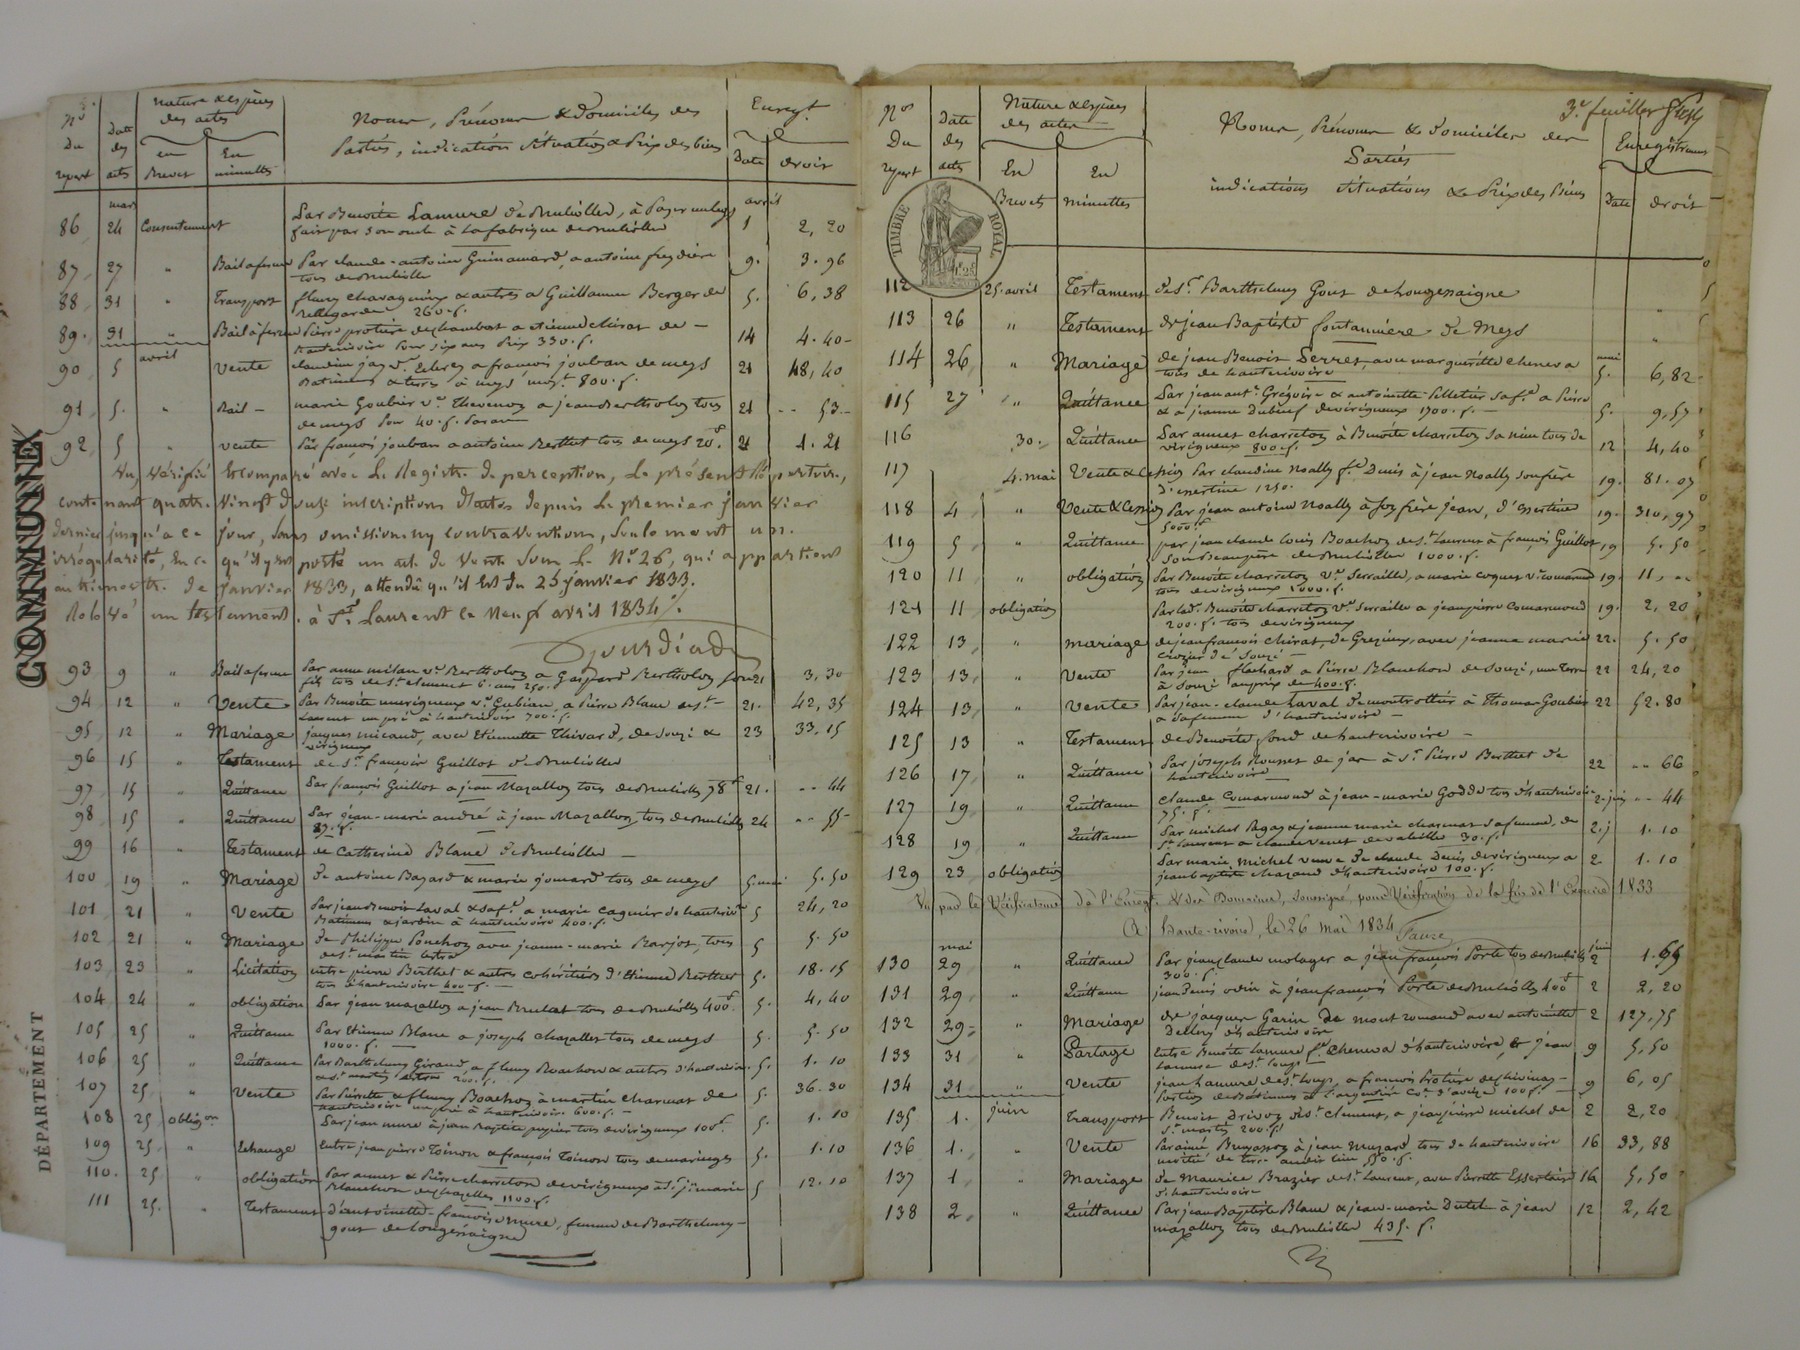 COMMUNNEX
DÉPARTEMENT
Nos Du repert
Date des actes
Nature & espèces des actes
en Brevet
En minuttes
Noms, Prénoms & Domiciles des
Parties, indication situation & Prix des biens
Enregt
Date
droit
mars avril
86 24 Consentement Par Benoite Lamure de Brullioles, à
fait par son oncle à la fabrique de Brullioles 1 2, 20
87 27 " Bail a ferme Par claude-antoine Guinamard, a antoine freydière
tous de Brullioles 9. 3. 96
88 31 " Transport fleury chavagneux & autres a Guillaume Berger de
Bellegarde 260 f. 5. 6, 38
89. 31 " Bail à ferme Pierre protière de chambost a etienne chirat de
hauterivoire Pour six ans Prix 330. f. 14 4. 40
avril
90 5 vente claudine jay a françois jouban de meys
Batimens & terres à meys moyt 800. f. 21 18, 40
91 5. " Bail marie Goubier ve Thevenon a jean Bertholon tous
de meys Pour 40. f. Par an 21 -- 53
92 5 " vente Par françois jouban a antoine Berthet tous de meys 20 f 21 1. 21
Vu, vérifié & comparé avec le Registre de perception, le présent Répertoire,
contenant quatre-vingt douze inscriptions d'actes depuis le premier janvier
dernier jusqu'à ce jour, sans omission, ny contravention, seulement une
irrégularité, en ce qu'il y est porté un acte de vente sous le No 26, qui appartient
au trimestre de Janvier 1833, attendu qu'il est du 25 janvier 1833.
Relevé un testament. à St Laurent ce neuf avril 1834.
93 9 " Bail a ferme Par anne milan ve Bertholon a Gaspard Bertholon son
fils tous de St clement 6 ans 250. 21 3, 30
94 12 " Vente Par Benoite murigneux ve Gubian, a Pierre Blanc de St
Laurent un pré à hauterivoire 700. f. 21. 42, 35
95 12 " Mariage jacques micaud, avec Etiennette Thivard, de souzi &
virigneux 23 33, 15
96 15 " Testament de Sr françois Guillot de Brullioles
97 15 " Quittance Par françois Guillot a jean Mazallon tous de Brullioles 78 f 21. -- 44
98 15 " Quittance Par jean-marie andré à jean Mazallon tous de Brullioles
87. f. 24 -- 55
99 16 " Testament de Catherine Blanc de Brullioles
100 19 " Mariage de antoine Bazard & marie jomard tous de meys 5. mai 5. 50
101 21 " Vente Par jean Benoit Laval & sa fe a marie cagnier de hauterivoire
Batimens & jardin à hauterivoire 400. f. 5 24, 20
102 21 " Mariage de Philippe Ponchon avec jeanne-marie Barjot, tous
de St martin 5 5. 50
103 23 " Licitation entre pierre Berthet & autres cohéritiers d'Etienne Berthet
tous d'hauterivoire 400 f. 5. 18. 15
104 24 " obligation Par jean mazallon a jean Brulat tous de Brullioles 400 f. 5. 4, 40
105 25 " Quittance Par Etienne Blanc a joseph chazallet tous de meys
1000. f. 5. 5. 50
106 25 " Quittance Par Barthelemy Giraud, a fleury Boachon & autres d'hauterivoire
& St martin 200. f. 5. 1. 10
107 25 " Vente Par Pierrette & fleury Boachon à martin charmat de
hauterivoire un pré à hauterivoire 600. f. 5. 36. 30
108 25 obligon Par jean mure à jean Baptiste pupier tous de virigneux 100 f. 5. 1. 10
109 25 " Echange entre jean pierre Toinon & françois Toinon tous de maringes 5. 1. 10
110. 25 " obligation Par annet & Pierre charreton de virigneux à Sr jn marie
Blanchon de chazelles 1100 f. 5 12. 10
111 25. " Testament d'antoinette-françoise mure, femme de Barthelemy
gout de Longessaigne
3e feuillet
Nos Du repert
Date des actes
Nature & espèces des actes
En Brevets
En minuttes
Noms, Prénoms & Domiciles des
Parties
indications situations & Prix des biens
Enregistrement
Date
droit
TIMBRE ROYAL
112 25. avril Testament de Sr Barthelemy Gout de Longessaigne
113 26 " Testament de jean Baptiste fontannière de Meys "
114 26 " Mariage de jean Benoit Serret, avec marguerite cheneva
tous de hauterivoire mai 5. 6, 82
115 27 " Quittance Par jean ant. Grégoire & antoinette Pelletier sa fe a Pierre
& a jeanne Dubeuf de virigneux 1700. f. 5. 9, 57
116 30. Quittance Par annet charreton à Benoite charreton sa nièce tous de
virigneux 800. f. 12 4, 40
117 4. mai Vente & Cession Par claudine Noally fe Denis à jean Noally son frère
d'essertine 1250. 19. 81. 07
118 4 " Vente & Cession Par jean antoine Noally à son frère jean, d'essertine
5000 f. 19. 310, 97
119 5 " Quittance par jean claude Louis Boachon de St Laurent à françois Guillot
son Beaupère de Brullioles 1000. f. 19 5. 50
120 11 " obligation Par Benoite charreton ve Serraille, a marie coquet ve comarmond
tous de virigneux 1000. f. 19. 11, --
121 11 obligation Par lad. Benoite charreton ve Serraille a jean pierre Comarmond
200. f. tous de virigneux 19. 2, 20
122 13 " Mariage de jean françois chirat, de Grezieux, avec jeanne marie
crozier de Souzi 22. 5. 50
123 13 " Vente Par jean flachard a Pierre Blanchon de souzi, une terre
à Souzi au prix de 400. f. 22 24, 20
124 13 " Vente Par jean-claude Laval de montrottier à thomas Goubier
& sa femme d'hauterivoire 22 52. 80
125 13 " Testament de Benoite fond de hauterivoire
126 17 " Quittance Par joseph Rousset de jas à Sr Pierre Berthet de
hauterivoire 22 -- 66
127 19 " Quittance claude Comarmond à jean-marie Goddé tous d'hauterivoire
75. f. 2. juin -- 44
128 19 " Quittance Par michel Pagay & jeanne marie charmat sa femme, de
St Laurent a claude venet de valeille 30. f. 2. j 1. 10
129 23 obligation Par marie michel veuve de claude Denis de virigneux a
jean baptiste chazaud d'hauterivoire 100 f. 2 1. 10
Vu par le Vérificateur de l'Enregt & des Domaines, soussigné, pour Vérification de la fin de l'Exercice 1833
A Haute-rivoire, le 26 mai 1834 Faure
mai juin
130 29 " Quittance Par jean claude molager a jean françois Porte tous de Brullioles
300. f. 2 1. 65
131 29, " Quittance jean Denis odin à jean françois Porte de Brullioles 400 f 2 2, 20
132 29 " Mariage de jacques Garin de mont romand avec antoinette
Dellery d'hauterivoire 2 127, 75
133 31 " Partage Entre Benoite Lamure fe Cheneva d'hauterivoire, & jean
Lamure de St Loup 9 5, 50
134 31 " Vente jean Lamure de St Loup, a françois Protière de chivinay
Portion de Batimens à l'argentière Cne d'aveize 100 f. 9 6, 05
135 1. juin Transport Benoit Drivon de St clement, a jean pierre michel de
St martin 200. f. 2 2, 20
136 1. " Vente Par aimé Bruyasson à jean muzard tous de hauterivoire
moitié de terre audit lieu 550. f. 16 33, 88
137 1 " Mariage de Maurice Brazier de St Laurent, avec Pierrette Essertaire
d'hauterivoire 16 5, 50
138 2 " Quittance Par jean Baptiste Blanc & jean-marie Dutel à jean
mazallon tous de Brullioles 435. f. 12 2, 42